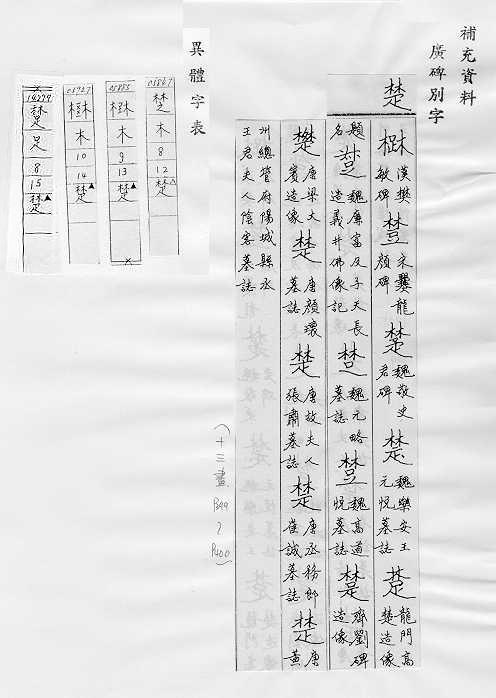 補充資料
廣碑別字
楚
漢樊敏碑
宋爨龍顏碑
楚 魏敬史君碑
楚 魏樂安王元悅墓誌
楚 龍門高楚造像
魏廉富及子天長造義井佛像記
魏元略墓誌
魏高道悅墓誌
楚 齊劉碑造像
唐梁大寶造像
楚 唐顏瓌墓誌
楚 唐故夫人張肅墓誌
楚 唐丞務郎崔誠墓誌
楚 唐黃
州總管府陽城縣丞
王君夫人陰客墓誌
(十三畫 P399~P400)
異體字表
03867
木
8
12
楚
03885
木
9
13
楚
03927
木
10
14
楚
14279
足
8
15
楚